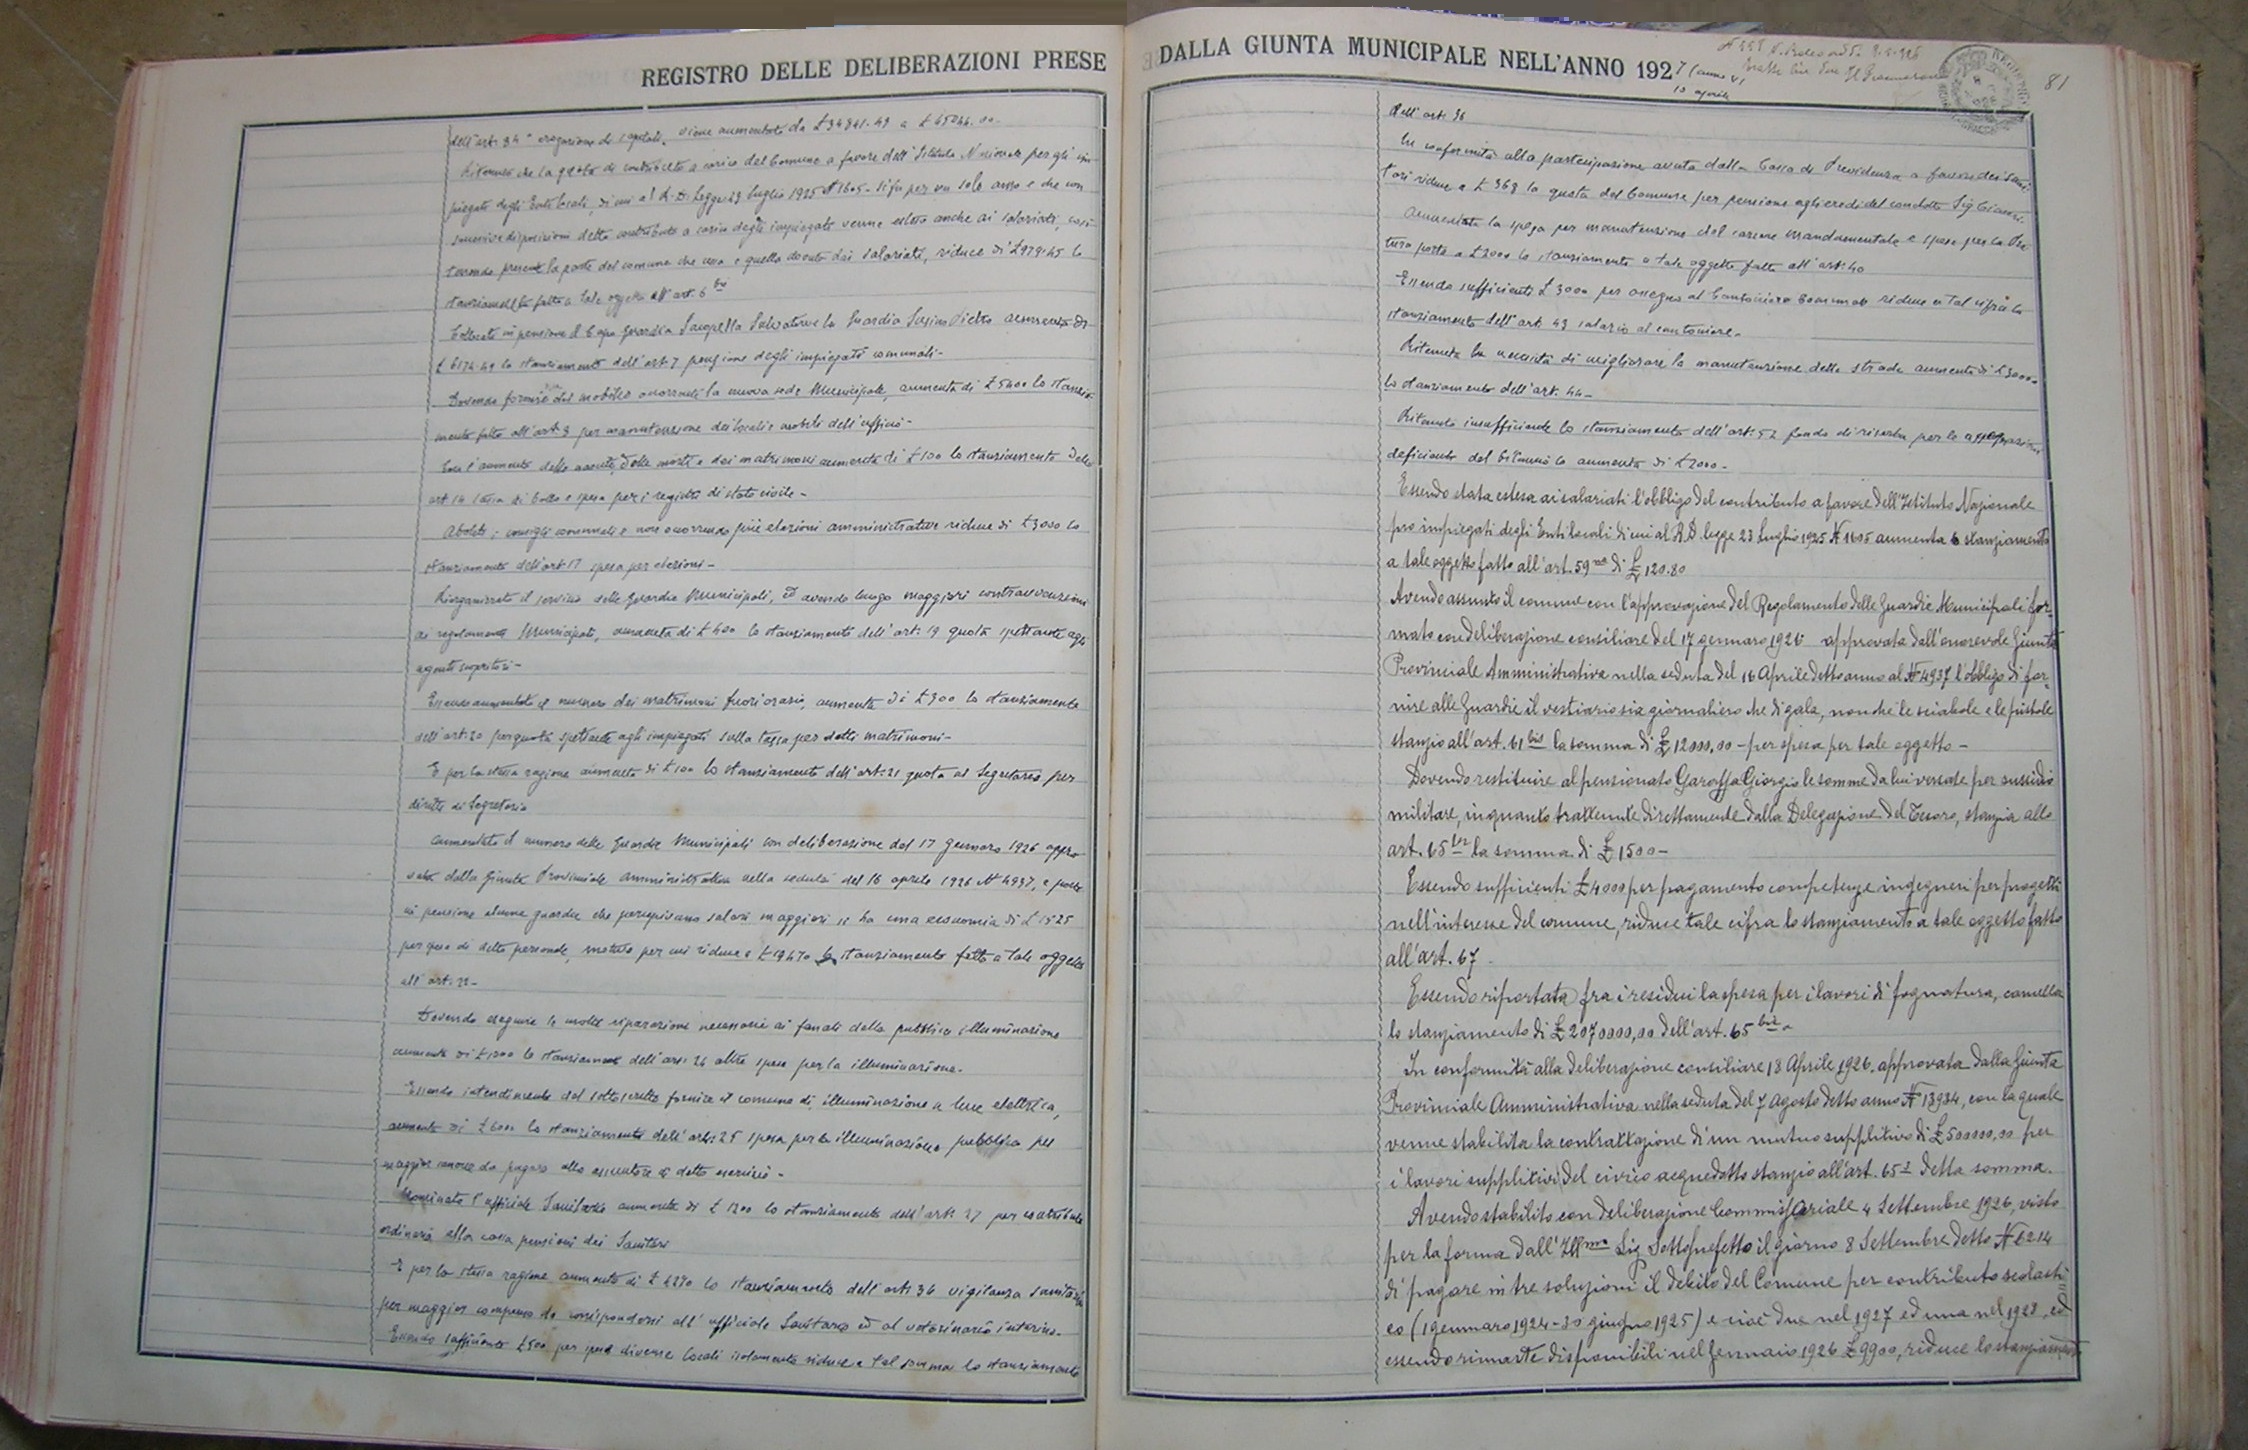 REGISTRO DELLE DELIBERAZIONI PRESE
dell'art. 34 erogazione di capitali, viene aumentato da £ 34941.49 a £ 45044.00.
Ritenuto che la quota di contributo a carico del Comune a favore dell'Istituto Nazionale per gli im
piegati degli Enti locali, di cui al R. D. Legge 23 luglio 1925 N 1605 si fu per un solo anno e che con
successive disposizioni detto contributo a carico degli impiegati venne esteso anche ai salariati, così
tenendo presente la parte del comune che una e quella dovuta dai salariati, riduce di £ 979.45 lo
stanziamento fatto a tale oggetto all'art. 6
Collocati in pensione il Capo guardia Salvatore e la Guardia Pietro aumenta di
£ 6174.49 lo stanziamento dell'art. 7 pensione degli impiegati comunali -
Dovendo fornire dei mobili occorrenti la nuova sede Municipale, aumenta di £ 5400 lo stanzia
mento fatto all'art. 8 per manutenzione dei locali e mobili dell'ufficio -
l'aumento delle nascite, delle morti e dei matrimoni aumenta di £ 100 lo stanziamento dello
art. 14 tassa di bollo e spesa per i registri di stato civile -
Aboliti i consigli comunali e non occorrendo più elezioni amministrative riduce di £ 3000 lo
stanziamento dell'art. 17 spesa per elezioni -
Riorganizzato il servizio delle Guardie Municipali, ed avendo luogo maggiori contravvenzioni
ai regolamenti Municipali, aumenta di £ 400 lo stanziamento dell'art. 19 quota spettante agli
agenti scopritori -
Essendo aumentato il numero dei matrimoni fuori orario, aumenta di £ 300 lo stanziamento
dell'art. 20 per quota spettante agli impiegati sulla tassa per detti matrimoni -
E per la stessa ragione aumenta di £ 100 lo stanziamento dell'art. 21 quota al Segretario per
diritti di Segreteria
Aumentato il numero delle Guardie Municipali con deliberazione del 17 gennaro 1926 appro
vata dalla Giunta Provinciale Amministrativa nella seduta del 16 aprile 1926 N° 4937, e poste
in pensione alcune guardie che percepivano salari maggiori si ha una economia di £ 1525
per spesa di detto personale, motivo per cui riduce a £ 19470 lo stanziamento fatto a tale oggetto
all'art. 22 -
Dovendo eseguire le molte riparazioni necessarie ai fanali della pubblica illuminazione
aumenta di £ 1000 lo stanziamento dell'art. 24 altre spese per la illuminazione.
Essendo intendimento del sottoscritto fornire il comune di illuminazione a luce elettrica,
aumenta di £ 6000 lo stanziamento dell'art. 25 spesa per la illuminazione pubblica per
maggior canone da pagarsi allo assuntore di detto esercizio -
Nominato l'ufficiale Sanitario aumenta di £ 1200 lo stanziamento dell'art. 27 per contributo
ordinario alla cassa pensioni dei Sanitari
E per la stessa ragione aumenta di £ 4270 lo stanziamento dell'art. 34 vigilanza sanitaria
per maggior compenso da corrispondersi all'ufficiale Sanitario ed al veterinario interino.
Essendo sufficiente £ 500 per spese diverse locali isolamento riduce a tal somma lo stanziamento
DALLA GIUNTA MUNICIPALE NELL'ANNO 1927 (anno V)
10 aprile
81
dell'art. 36
In conformità alla partecipazione avuta dalla Cassa di Previdenza a favore dei Sani
tari riduce a £ 368 la quota del Comune per pensione agli eredi del condotto Sig.
Aumentata la spesa per manutenzione del carcere mandamentale e spese per la Pre
tura porta a £ 2000 lo stanziamento a tale oggetto fatto all'art. 40
Essendo sufficienti £ 3000 per assegno al Cantoniere Comunale riduce a tal cifra lo
stanziamento dell'art. 43 salario al cantoniere -
Ritenuta la necessità di migliorare la manutenzione delle strade aumenta di £ 3000
lo stanziamento dell'art. 44 -
Ritenuto insufficiente lo stanziamento dell'art. 52 fondo di riserva per le
deficiente del bilancio lo aumenta di £ 2000 -
Essendo stata estesa ai salariati l'obbligo del contributo a favore dell'Istituto Nazionale
pro impiegati degli Enti locali di cui al R. D. legge 23 Luglio 1925 N 1605 aumenta lo stanziamento
a tale oggetto fatto all'art. 59 di £ 120.80
Avendo assunto il comune con l'approvazione del Regolamento delle Guardie Municipali for-
mato con deliberazione consiliare del 17 gennaro 1926 approvata dall'onorevole Giunta
Provinciale Amministrativa nella seduta del 16 Aprile detto anno al N 4937 l'obbligo di for-
nire alle Guardie il vestiario sia giornaliero che di gala, nonché le sciabole e le pistole
stanzio all'art. 61 bis la somma di £ 12000,00 - per spesa per tale oggetto -
Dovendo restituire al pensionato Garoffa Giorgio le somme da lui versate per sussidio
militare, in quanto trattenute direttamente dalla Delegazione del Tesoro, stanzia allo
art. 65 ter la somma di £ 1500 -
Essendo sufficienti £ 4000 per pagamento competenze ingegneri per progetti
nell'interesse del comune, riduce tale cifra lo stanziamento a tale oggetto fatto
all'art. 67.
Essendo riportata fra i residui la spesa per i lavori di fognatura, cancella
lo stanziamento di £ 2070000,00 dell'art. 65 bis.
In conformità alla deliberazione consiliare 18 Aprile 1926, approvata dalla Giunta
Provinciale Amministrativa nella seduta del 7 Agosto detto anno N 13934, con la quale
venne stabilita la contrattazione di un mutuo supplitivo di £ 500000,00 per
i lavori supplitivi del civico acquedotto stanzio all'art. 65 detta somma.
Avendo stabilito con deliberazione Commissariale 4 Settembre 1926, visto
per la forma dall'Ill.mo Sig. Sottoprefetto il giorno 8 Settembre detto N 6214
di pagare in tre soluzioni il debito del Comune per contributo scolasti
co (1 gennaro 1924 - 30 giugno 1925) e cioè due nel 1927 ed una nel 1928, ed
essendo rimaste disponibili nel gennaio 1926 £ 9900, riduce lo stanziamento